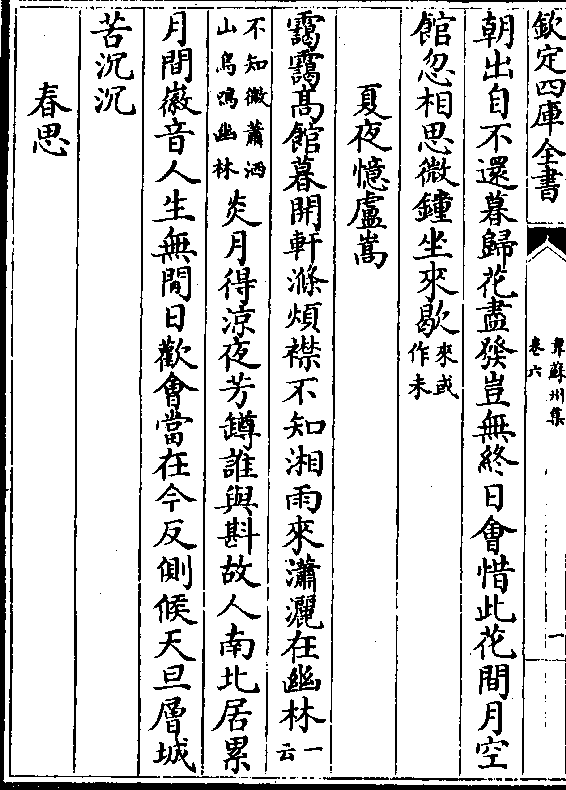 欽定四庫全書
韋蘇州集
卷六
一
朝出自不還暮歸花盡發豈無終日會惜此花間月空
館忽相思微鐘坐來歇來或作未
夏夜憶盧嵩
靄靄高館暮開軒滌煩襟不知湘雨來瀟灑在幽林一云
不知微蕭洒山鳥鳴幽林炎月得涼夜芳罇誰與斟故人南北居累
月間徽音人生無閒日歡會當在今反側候天旦層城
苦沉沉
春思